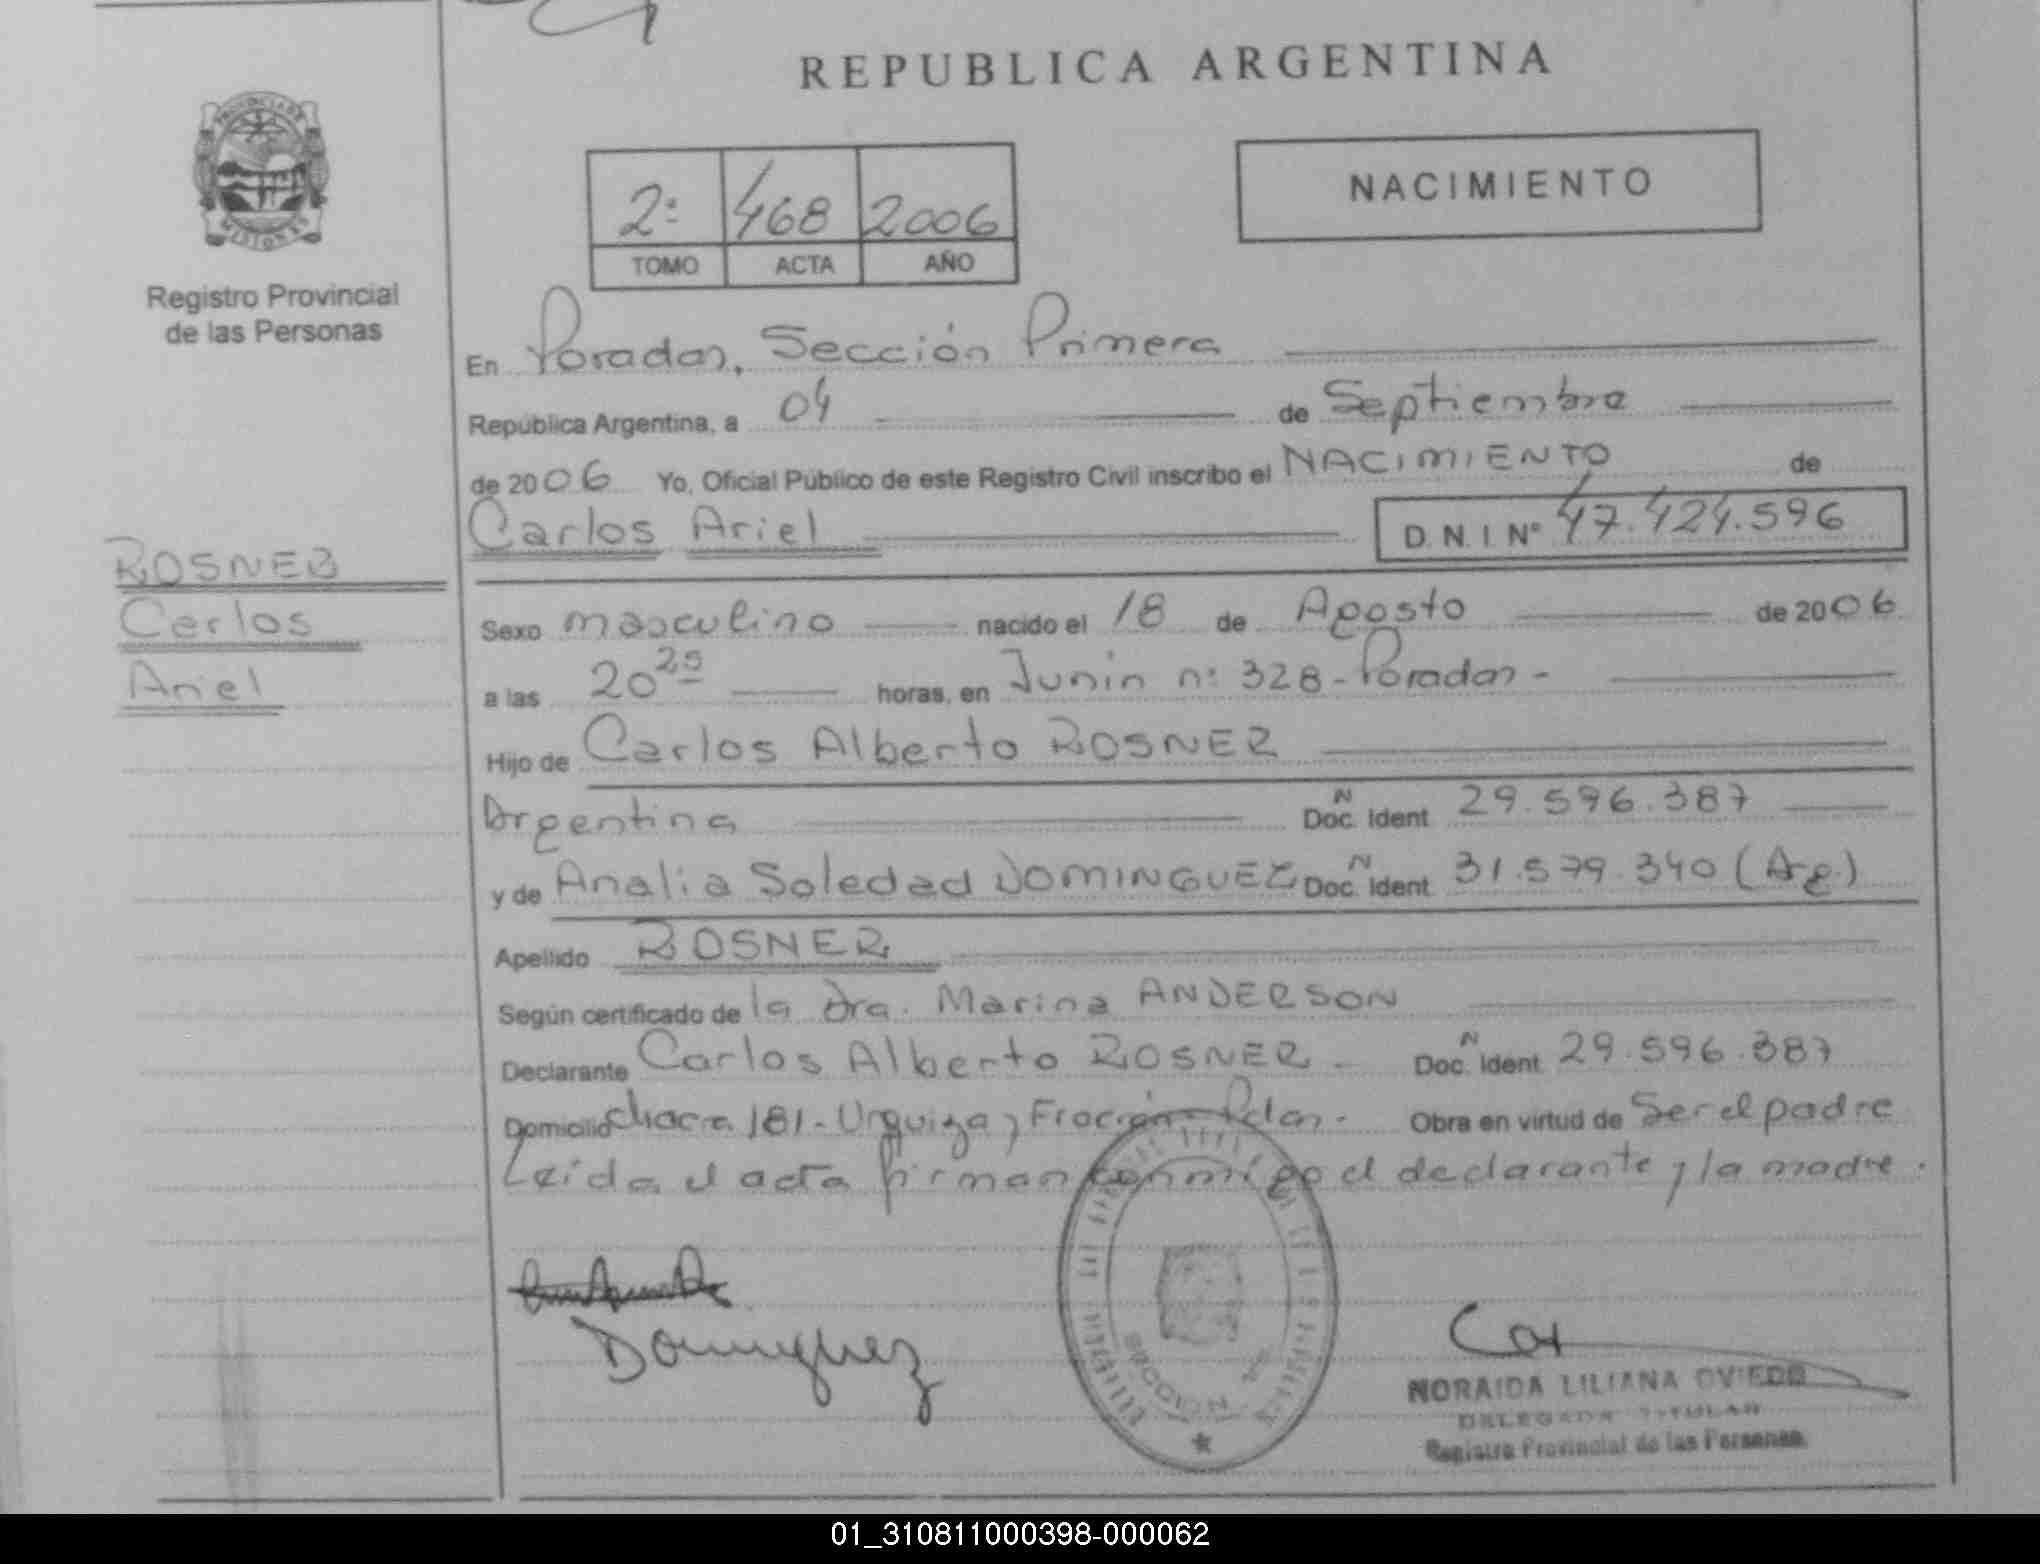 REPUBLICA ARGENTINA
PROVINCIA DE
MISIONES
Registro Provincial
de las Personas
2º 468 2006
TOMO ACTA AÑO
NACIMIENTO
En Posadas, Sección Primera
República Argentina, a 04 de Septiembre
de 2006 Yo, Oficial Público de este Registro Civil inscribo el NACIMIENTO de
Carlos Ariel D.N.I. Nº 47.424.596
ROSNER
Carlos
Ariel
Sexo masculino nacido el 18 de Agosto de 2006
a las 20 25 horas, en Junín nº 328 - Posadas -
Hijo de Carlos Alberto ROSNER
Argentina Doc. Ident. N 29.596.387
y de Analia Soledad DOMINGUEZ Doc. Ident. N 31.579.340 (Arg.)
Apellido ROSNER
Según certificado de la Dra. Marina ANDERSON
Declarante Carlos Alberto ROSNER - Doc. Ident. N 29.596.387
Domicilio chacra 181 - Urquiza y Fracción - Pdas. Obra en virtud de Ser el padre
Leída el acta firman conmigo el declarante y la madre.
Dominguez
SECCION
NORAIDA LILIANA OVIEDO
DELEGADA TITULAR
Registro Provincial de las Personas
01_310811000398-000062